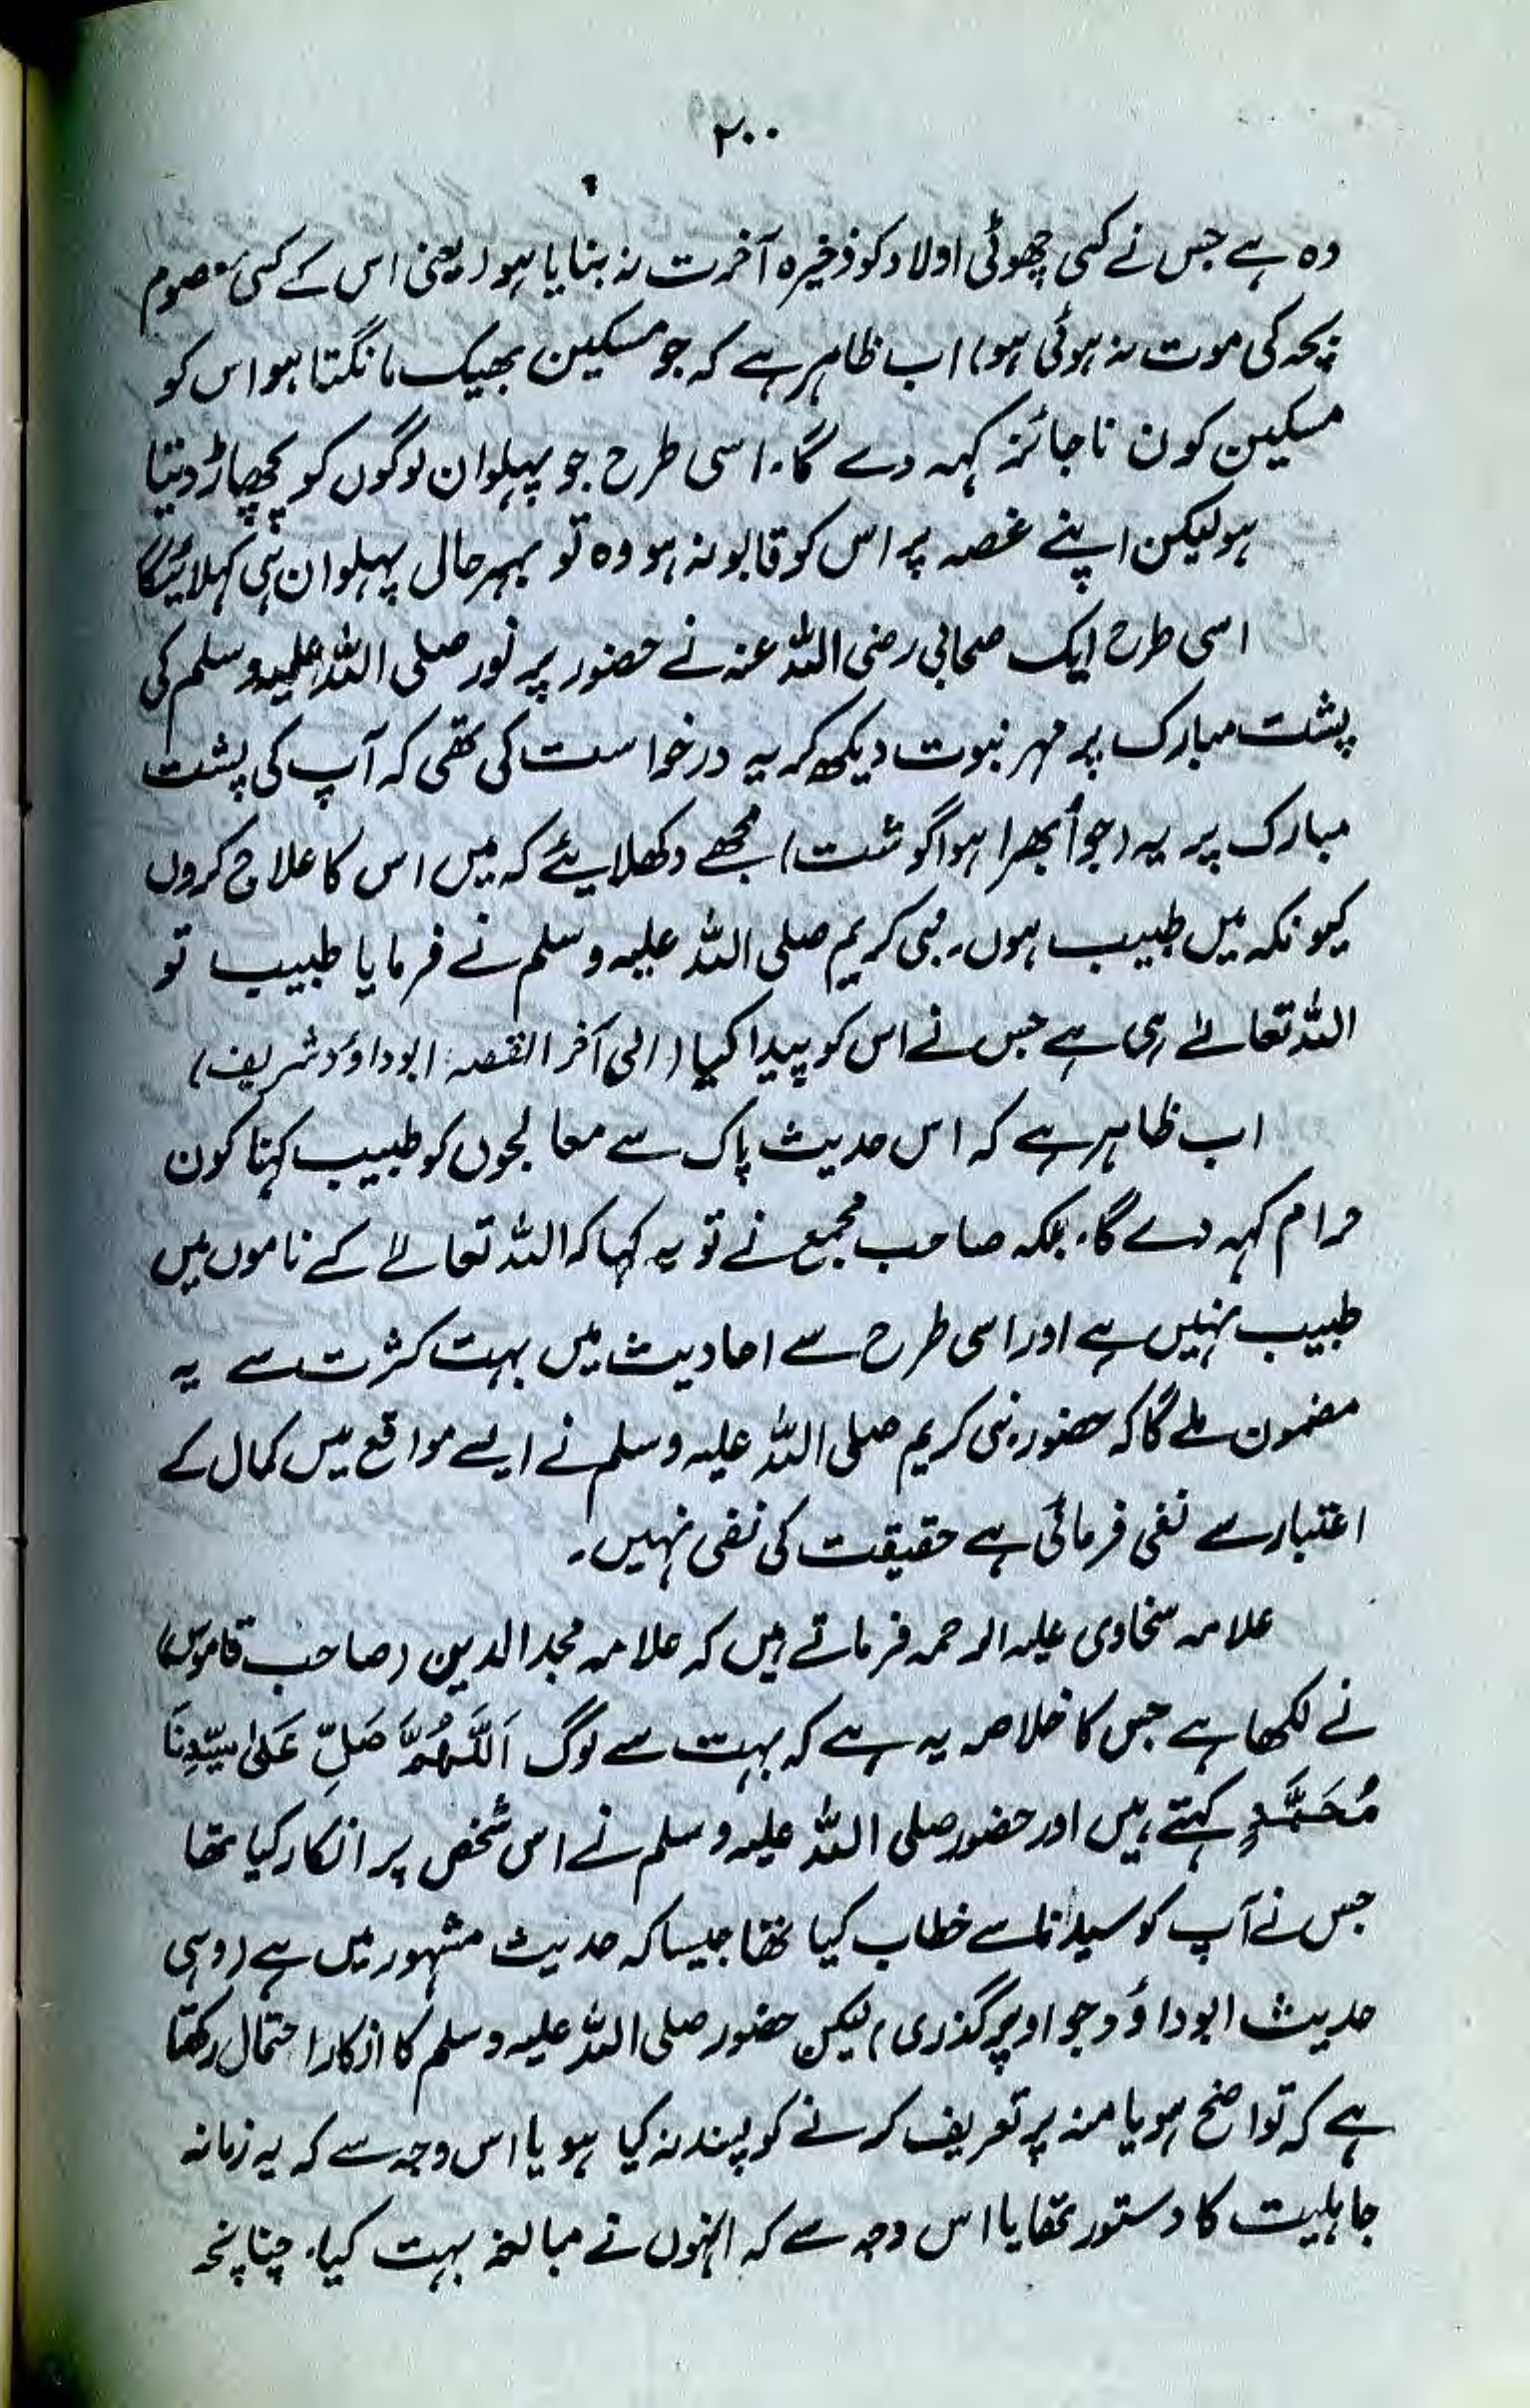 ۲۰۰
وہ ہے جس نے کسی چھوٹی اولاد کو ذخیرہ آخرت نہ بنایا ہو (یعنی اس کے کسی معصوم
بچہ کی موت نہ ہوئی ہو) اب ظاہر ہے کہ جو مسکین بھیک مانگتا ہو اس کو
مسکین کون ناجائز کہہ دے گا۔ اسی طرح جو پہلوان لوگوں کو پچھاڑ دیتا
ہو لیکن اپنے غصہ پر اس کو قابو نہ ہو وہ تو بہرحال پہلوان ہی کہلائیگا
اسی طرح ایک صحابی رضی اللہ عنہ نے حضور پر نور صلی اللہ علیہ وسلم کی
پشت مبارک پر مہر نبوت دیکھ کر یہ درخواست کی تھی کہ آپ کی پشت
مبارک پر یہ (جو اُبھرا ہوا گوشت) مجھے دکھلایئے کہ میں اس کا علاج کروں
کیونکہ میں طبیب ہوں۔ نبی کریم صلی اللہ علیہ وسلم نے فرمایا طبیب تو
اللہ تعالےٰ ہی ہے جس نے اس کو پیدا کیا (الی آخر القصہ ابوداؤد شریف)
اب ظاہر ہے کہ اس حدیث پاک سے معالجوں کو طبیب کہنا کون
حرام کہہ دے گا۔ بلکہ صاحب مجمع نے تو یہ کہا کہ اللہ تعالےٰ کے ناموں میں
طبیب نہیں ہے اور اسی طرح سے احادیث میں بہت کثرت سے یہ
مضمون ملے گا کہ حضور نبی کریم صلی اللہ علیہ وسلم نے ایسے مواقع میں کمال کے
اعتبار سے نفی فرمائی ہے حقیقت کی نفی نہیں۔
علامہ سخاوی علیہ الرحمہ فرماتے ہیں کہ علامہ مجد الدین (صاحب قاموس)
نے لکھا ہے جس کا خلاصہ یہ ہے کہ بہت سے لوگ اَللّٰھُمَّ صَلِّ عَلیٰ سَیِّدِنَا
مُحَمَّدٍ کہتے ہیں اور حضور صلی اللہ علیہ وسلم نے اس شخص پر انکار کیا تھا
جس نے آپ کو سیدنا سے خطاب کیا تھا جیسا کہ حدیث مشہور میں ہے (وہی
حدیث ابوداؤد جو اوپر گذری) لیکن حضور صلی اللہ علیہ وسلم کا انکار احتمال رکھتا
ہے کہ تواضع ہو یا منہ پر تعریف کرنے کو پسند نہ کیا ہو یا اس وجہ سے کہ یہ زمانہ
جاہلیت کا دستور تھا یا اس وجہ سے کہ انہوں نے مبالغہ بہت کیا۔ چنانچہ